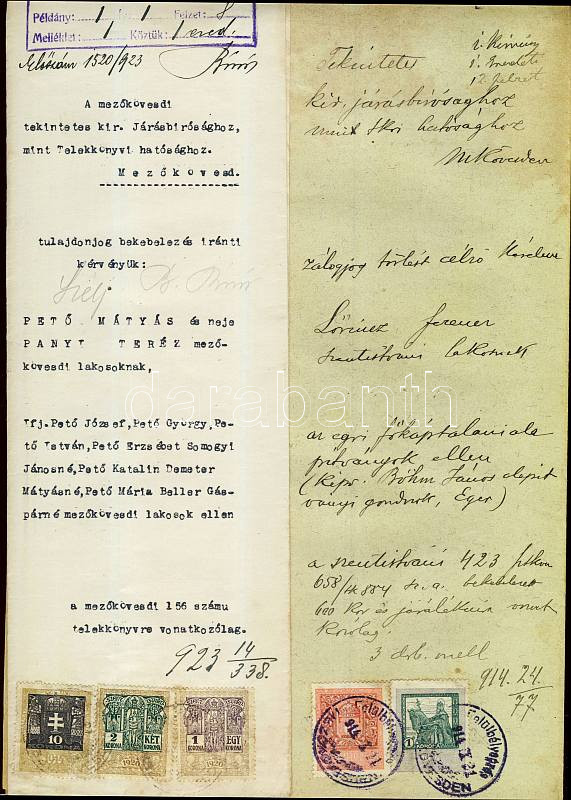 Példány: 1 Felzet: 8
Melléklet: 1 Köztük: 1 ered.
1520/923
A mezőkövesdi
tekintetes kir. Járásbirósághoz,
mint Telekkönyvi hatósághoz.
Mezőkövesd.
tulajdonjog bekebelezés iránti
kérvényük:
PETŐ MÁTYÁS és neje
PANYI TERÉZ mező-
kövesdi lakosoknak,
Ifj.Pető József,Pető György,Pe-
tő István,Pető Erzsébet Somogyi
Jánosné,Pető Katalin Demeter
Mátyásné,Pető Mária Beller Gás-
párné mezőkövesdi lakosok ellen
a mezőkövesdi 156 számu
telekkönyvre vonatkozólag.
923 14/338.
10
2 KÉT
KORONA KORONA
1920
1 EGY
KORONA KORONA
1920
Tekintetes
kir. járásbirósághoz
mint tkvi hatósághoz
MKövesden
zálogjog törlést célzó kérelme
Lőrincz Ferencz
szentistváni lakosnak
az egri főkáptalani ala
pitványok ellen
(képv. Böhm János alapit
ványi gondnok, Eger)
a szentistváni 423 sztkvn
600 kor és járulékaira vonat
kozólag.
3 drb. mell
914. 24/77
1
Felülbélyegzés
darabanth